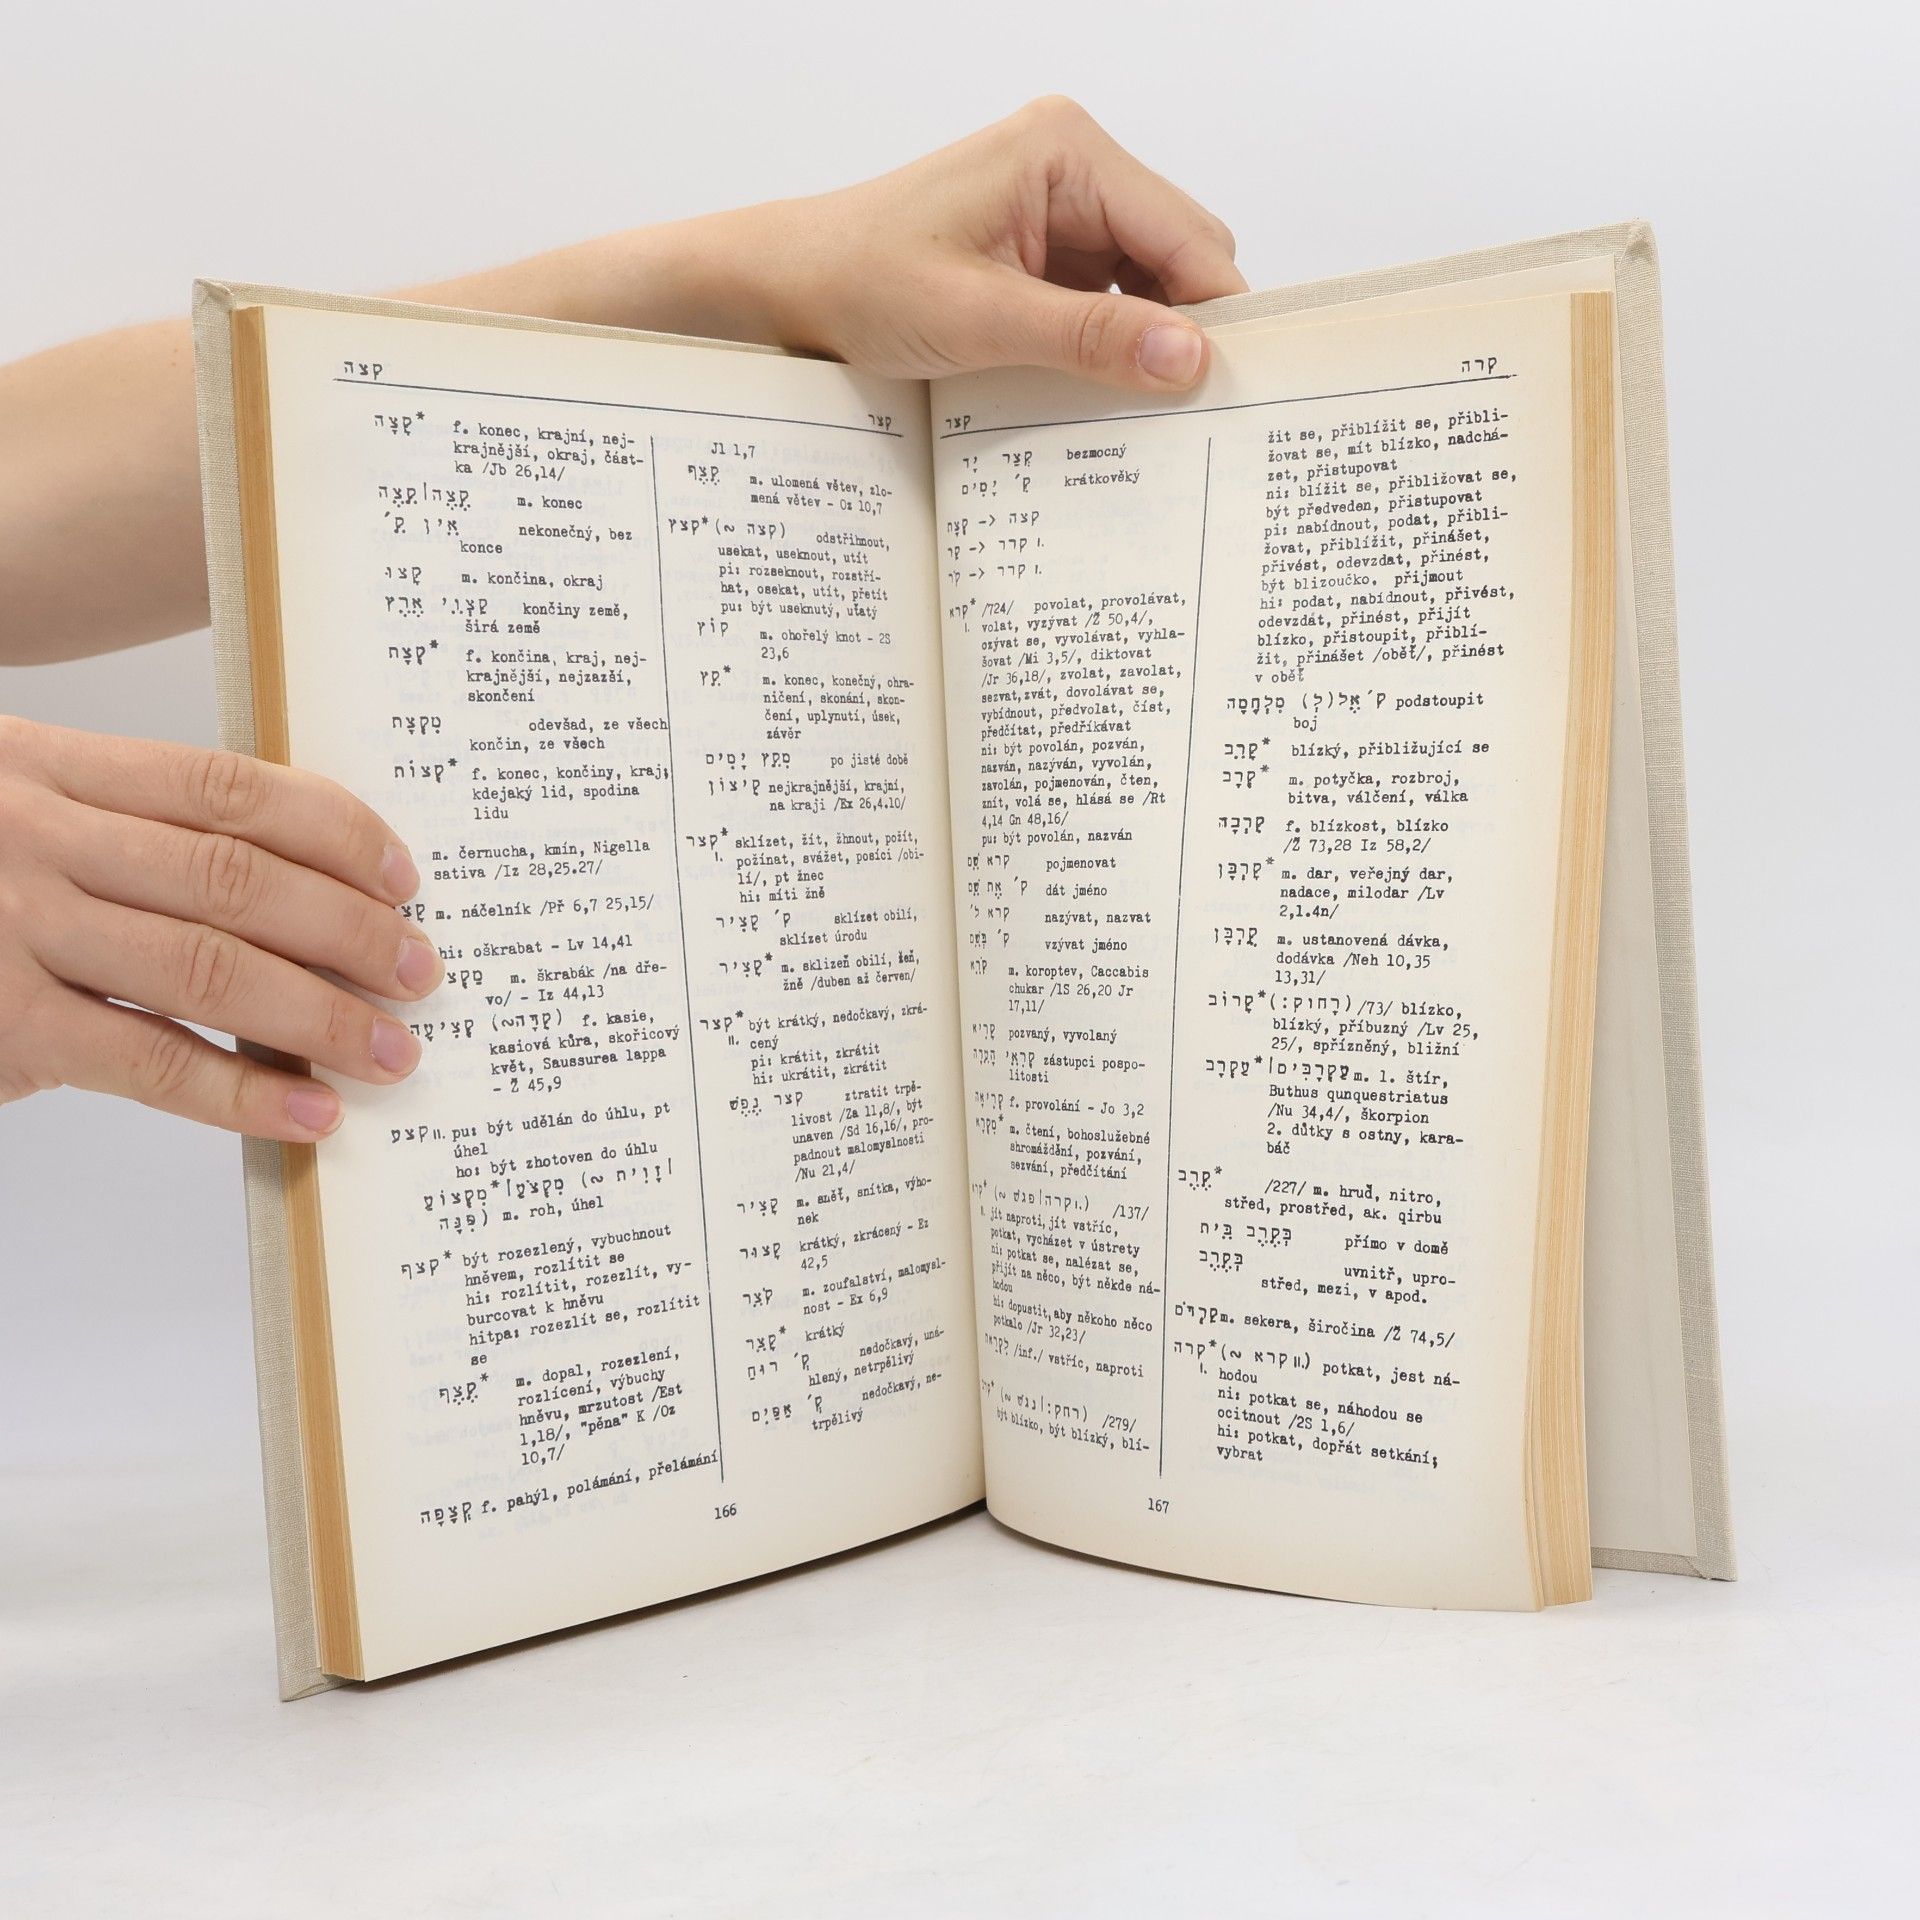 קצה
קצר
קָצָה* f. konec, krajní, nej-
krajnější, okraj, část-
ka /Jb 26,14/
קָצֶה|קֵצֶה m. konec
אֵין ק׳ nekonečný, bez
konce
קָצוּ m. končina, okraj
קַצְוֵי אֶרֶץ končiny země,
širá země
קְצָת* f. končina, kraj, nej-
krajnější, nejzazší,
skončení
מִקְצָת odevšad, ze všech
končin, ze všech
קָצוֹת* f. konec, končiny, kraj;
kdejaký lid, spodina
lidu
m. černucha, kmín, Nigella
sativa /Iz 28,25.27/
m. náčelník /Př 6,7 25,15/
hi: oškrabat - Lv 14,41
m. škrabák /na dře-
vo/ - Iz 44,13
קְצִיעָה (קִדָּה~) f. kasie,
kasiová kůra, skořicový
květ, Saussurea lappa
- Ž 45,9
קצע II. pu: být udělán do úhlu, pt
úhel
ho: být zhotoven do úhlu
מִקְצוֹעַ*|מִקְצֹעַ (~ זָוִית|
פִּנָּה) m. roh, úhel
קצף* být rozezlený, vybuchnout
hněvem, rozlítit se
hi: rozlítit, rozezlít, vy-
burcovat k hněvu
hitpa: rozezlít se, rozlítit
se
קֶצֶף* m. dopal, rozezlení,
rozlícení, výbuchy
hněvu, mrzutost /Est
1,18/, "pěna" K /Oz
10,7/
קְצָפָה f. pahýl, polámání, přelámání
Jl 1,7
קֶצֶף m. ulomená větev, zlo-
mená větev - Oz 10,7
קצץ* (~ קצה) odstřihnout,
usekat, useknout, utít
pi: rozseknout, rozstří-
hat, osekat, utít, přetít
pu: být useknutý, uťatý
קוֹץ m. ohořelý knot - 2S
23,6
קֵץ* m. konec, konečný, ohra-
ničení, skonání, skon-
čení, uplynutí, úsek,
závěr
מִקֵּץ יָמִים po jisté době
קִיצוֹן nejkrajnější, krajní,
na kraji /Ex 26,4.10/
קצר* I. sklízet, žít, žhnout, požít,
požínat, svážet, posíci /obi-
lí/, pt žnec
hi: míti žně
ק׳ קָצִיר sklízet obilí,
sklízet úrodu
קָצִיר* m. sklizeň obilí, žeň,
žně /duben až červen/
קצר* II. být krátký, nedočkavý, zkrá-
cený
pi: krátit, zkrátit
hi: ukrátit, zkrátit
קצר נֶפֶשׁ ztratit trpě-
livost /Za 11,8/, být
unaven /Sd 16,16/, pro-
padnout malomyslnosti
/Nu 21,4/
קָצִיר m. sněť, snítka, výho-
nek
קָצוּר krátký, zkrácený - Ez
42,5
קֹצֶר m. zoufalství, malomysl-
nost - Ex 6,9
קָצֵר* krátký
ק׳ רוּחַ nedočkavý, uná-
hlený, netrpělivý
ק׳ אַפַּיִם nedočkavý, ne-
trpělivý
166
קצר
קרה
קְצַר יָד bezmocný
ק׳ יָמִים krátkověký
קְצָת <- קצה
קַר <- קרר I.
קֹר <- קרר I.
קרא* I. /724/ povolat, provolávat,
volat, vyzývat /Ž 50,4/,
ozývat se, vyvolávat, vyhla-
šovat /Mi 3,5/, diktovat
/Jr 36,18/, zvolat, zavolat,
sezvat,zvát, dovolávat se,
vybídnout, předvolat, číst,
předčítat, předříkávat
ni: být povolán, pozván,
nazván, nazýván, vyvolán,
zavolán, pojmenován, čten,
znít, volá se, hlásá se /Rt
4,14 Gn 48,16/
pu: být povolán, nazván
קרא שֵׁם pojmenovat
ק׳ אֶת שֵׁם dát jméno
קרא ל׳ nazývat, nazvat
ק׳ בְּשֵׁם vzývat jméno
קֹרֵא m. koroptev, Caccabis
chukar /1S 26,20 Jr
17,11/
קָרִיא pozvaný, vyvolaný
קְרִיאֵי הָעֵדָה zástupci pospo-
litosti
קְרִיאָה f. provolání - Jo 3,2
מִקְרָא* m. čtení, bohoslužebné
shromáždění, pozvání,
sezvání, předčítání
קרא* II. (~ פגש|קרה I.) /137/
jít naproti, jít vstříc,
potkat, vycházet v ústrety
ni: potkat se, nalézat se,
přijít na něco, být někde ná-
hodou
hi: dopustit,aby někoho něco
potkalo /Jr 32,23/
לִקְרַאת /inf./ vstříc, naproti
קרב* (~ נגש|:רחק) /279/
být blízko, být blízký, blí-
žit se, přiblížit se, přibli-
žovat se, mít blízko, nadchá-
zet, přistupovat
ni: blížit se, přibližovat se,
být předveden, přistupovat
pi: nabídnout, podat, přibli-
žovat, přiblížit, přinášet,
přivést, odevzdat, přinést,
být blizoučko. přijmout
hi: podat, nabídnout, přivést,
odevzdát, přinést, přijít
blízko, přistoupit, přiblí-
žit, přinášet /oběť/, přinést
v oběť
ק׳ אֶל(לְ) מִלְחָמָה podstoupit
boj
קָרֵב* blízký, přibližující se
קְרָב* m. potyčka, rozbroj,
bitva, válčení, válka
קִרְבָה f. blízkost, blízko
/Ž 73,28 Iz 58,2/
קָרְבָּן* m. dar, veřejný dar,
nadace, milodar /Lv
2,1.4n/
קֻרְבָּן m. ustanovená dávka,
dodávka /Neh 10,35
13,31/
קָרוֹב* (:רָחוֹק) /73/ blízko,
blízký, příbuzný /Lv 25,
25/, spřízněný, bližní
עַקְרָב*|עַקְרַבִּים m. 1. štír,
Buthus qunquestriatus
/Nu 34,4/, škorpion
2. důtky s ostny, kara-
báč
קֶרֶב* /227/ m. hruď, nitro,
střed, prostřed, ak. qirbu
בְּקֶרֶב בֵּית přímo v domě
בְּקֶרֶב uvnitř, upro-
střed, mezi, v apod.
קַרְדֹּם m. sekera, širočina /Ž 74,5/
קרה* I. (~ קרא II.) potkat, jest ná-
hodou
ni: potkat se, náhodou se
ocitnout /2S 1,6/
hi: potkat, dopřát setkání;
vybrat
167